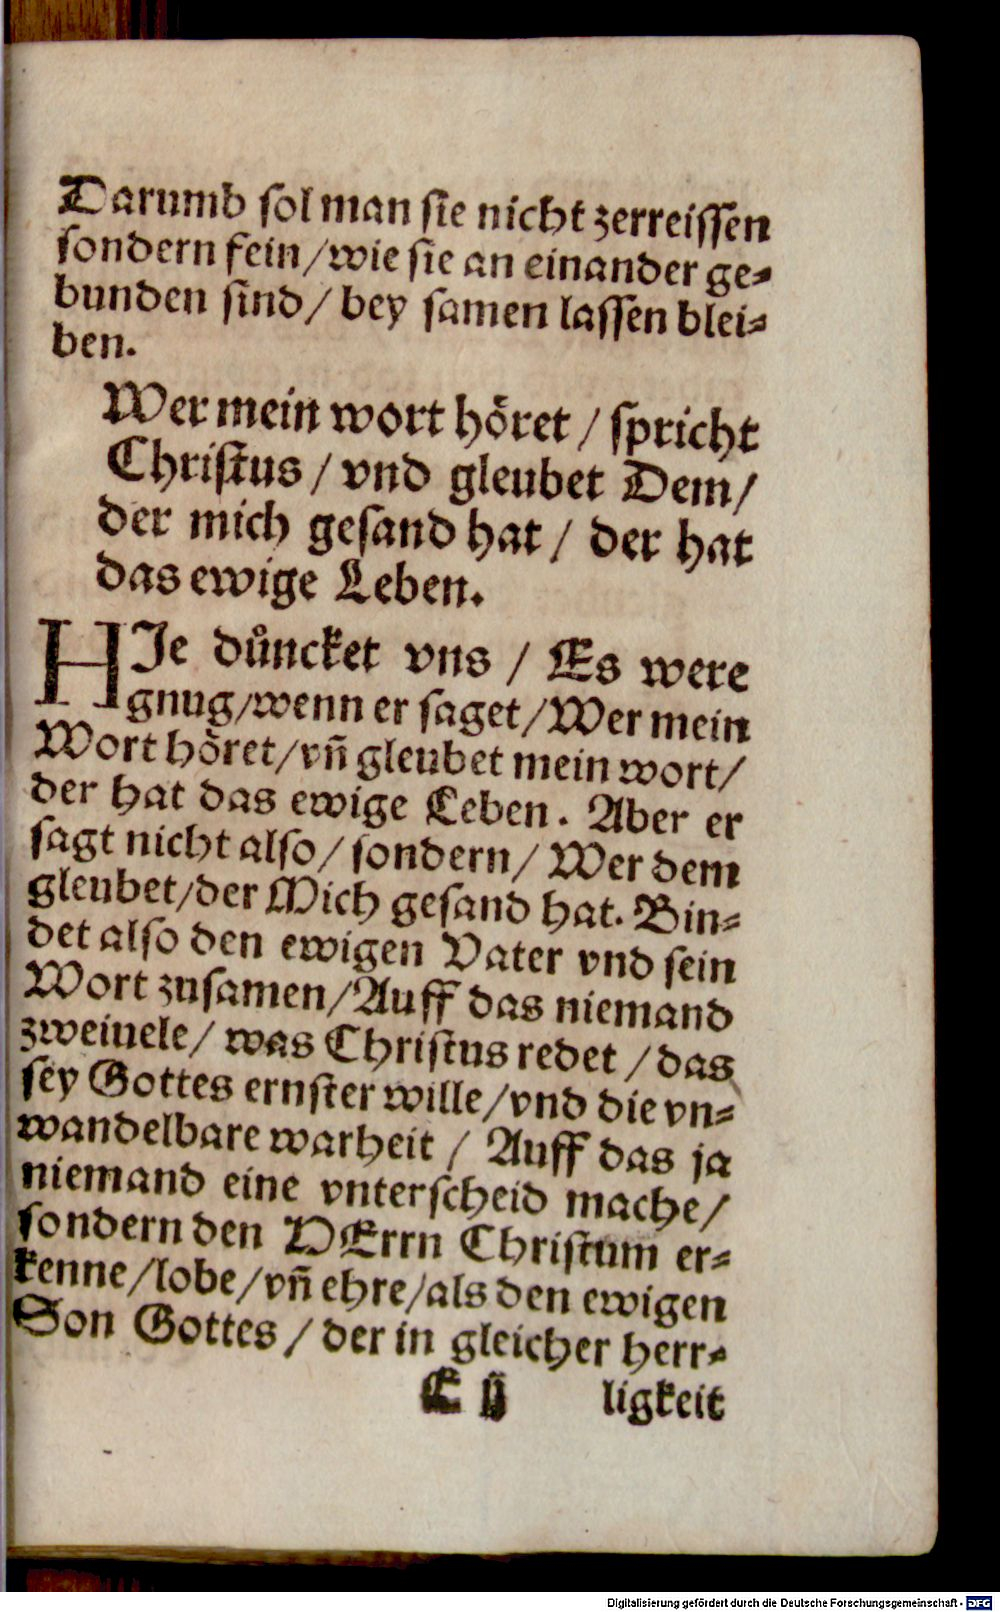 Darumb sol man sie nicht zerreissen
sondern fein/wie sie an einander ge-
bunden sind/ bey samen lassen blei-
ben.
Wer mein wort höret / spricht
Christus / vnd gleubet Dem/
der mich gesand hat / der hat
das ewige Leben.
HIe důncket vns / Es were
gnug/wenn er saget/Wer mein
Wort höret/vñ gleubet mein wort/
der hat das ewige Leben. Aber er
sagt nicht also/ sondern/ Wer dem
gleubet/der Mich gesand hat. Bin-
det also den ewigen Vater vnd sein
Wort zusamen/Auff das niemand
zweiuele/ was Christus redet / das
sey Gottes ernster wille/vnd die vn-
wandelbare warheit / Auff das ja
niemand eine vnterscheid mache/
sondern den HErrn Christum er-
kenne/lobe/vñ ehre/als den ewigen
Son Gottes / der in gleicher herr-
E ij ligkeit
Digitalisierung gefördert durch die Deutsche Forschungsgemeinschaft - DFG